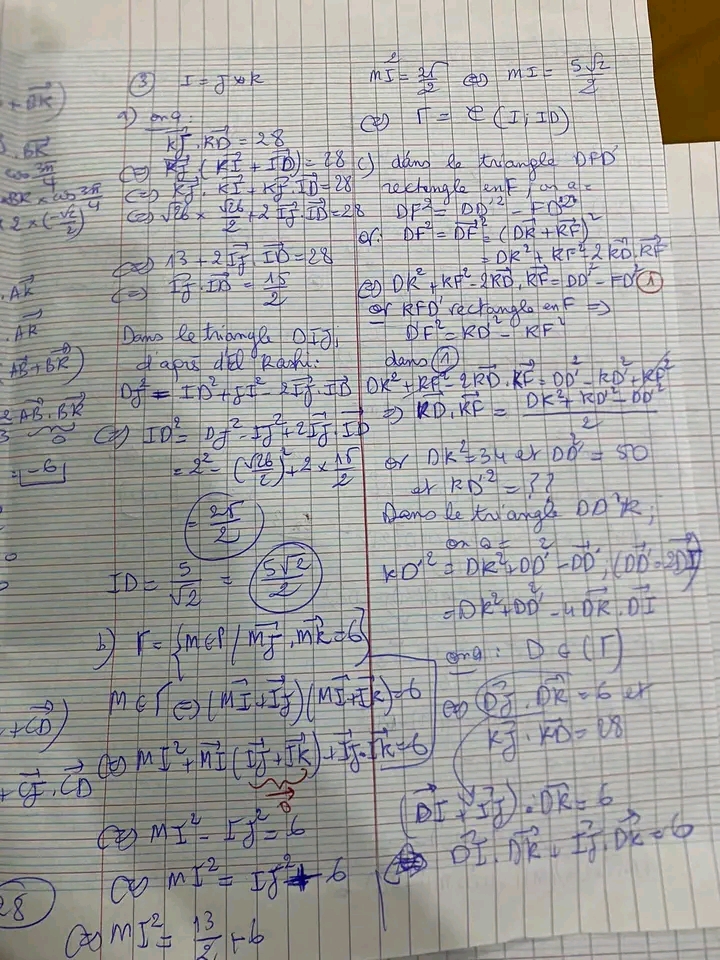 + BK)
. BK
cos 3π/4
BK × cos 3π/4
× 2 × (-√2/2)
. AK
. AK
AB + BK)
2 AB . BK
0
= -6
+ CD)
+ CJ . CD
28
③ I = J * K
a) on a :
KJ . KD = 28
(=) KJ . (KI + ID) = 28
(=) KJ . KI + KJ . ID = 28
(=) √26 × √26/2 + 2 IJ . ID = 28
(=) 13 + 2 IJ . ID = 28
(=) IJ . ID = 15/2
Dans le triangle DIJ,
d'après d'el Kashi :
DJ² = ID² + JI² - 2 IJ . ID
(=) ID² = DJ² - IJ² + 2 IJ . ID
= 2² - (√26/2)² + 2 × 15/2
= 25/2
ID = 5/√2 = 5√2/2
b) Γ = {M ∈ P / MJ . MK = 6}
M ∈ Γ (=) (MI + IJ)(MI + IK) = 6
(=) MI² + MI (IJ + IK) + IJ . IK = 6
0
(=) MI² - IJ² = 6
(=) MI² = IJ² + 6
(=) MI² = 13/2 + 6
MI² = 25/2 (=) MI = 5√2/2
(=) Γ = C (I ; ID)
c) dans le triangle DFD'
rectangle en F, on a =
DF² = DD'² - FD'²
or DF² = DF² = (DK + KF)²
= DK² + KF² - 2 KD . KF
(=) DK² + KF² - 2 KD . KF = DD'² - FD'² ①
or KFD' rectangle en F =>
DF² = KD'² - KF²
dans ①
DK² + KF² - 2 KD . KF = DD'² - KD'² + KF²
=> KD . KF = DK² + KD'² - DD'² / 2
or DK² = 34 et DD'² = 50
et KD'² = ??
Dans le triangle DD'K,
on a =
KD'² = DK² + DD'² - DD' , (DD' = 2DI)
= DK² + DD'² - 4 DK . DI
on a : D ∈ (Γ)
(=) DJ . DK = 6 et
KJ . KD = 28
(DI + IJ) . DK = 6
(=) DI . DK + IJ . DK = 6